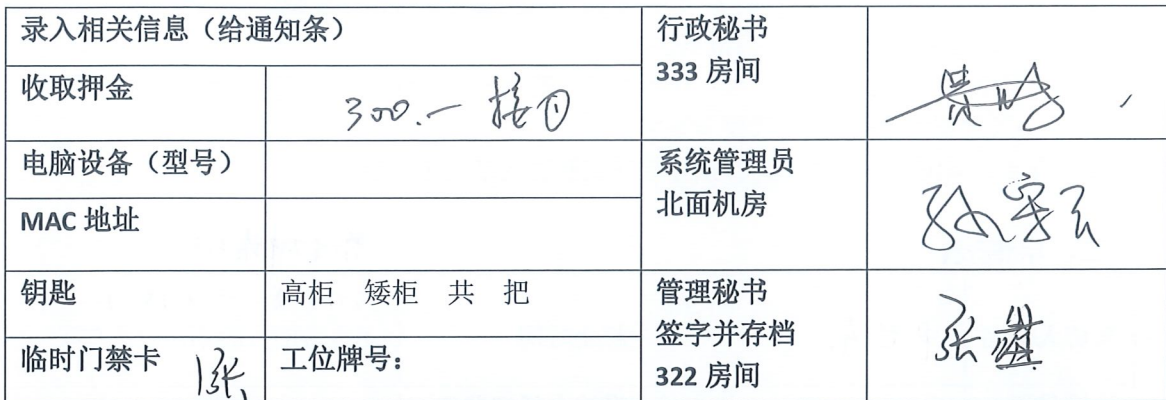 录入相关信息（给通知条）
行政秘书
333 房间
收取押金
300.一
电脑设备（型号）
系统管理员
北面机房
MAC 地址
钥匙
高柜 矮柜 共 把
管理秘书
签字并存档
322 房间
临时门禁卡 1张
工位牌号：